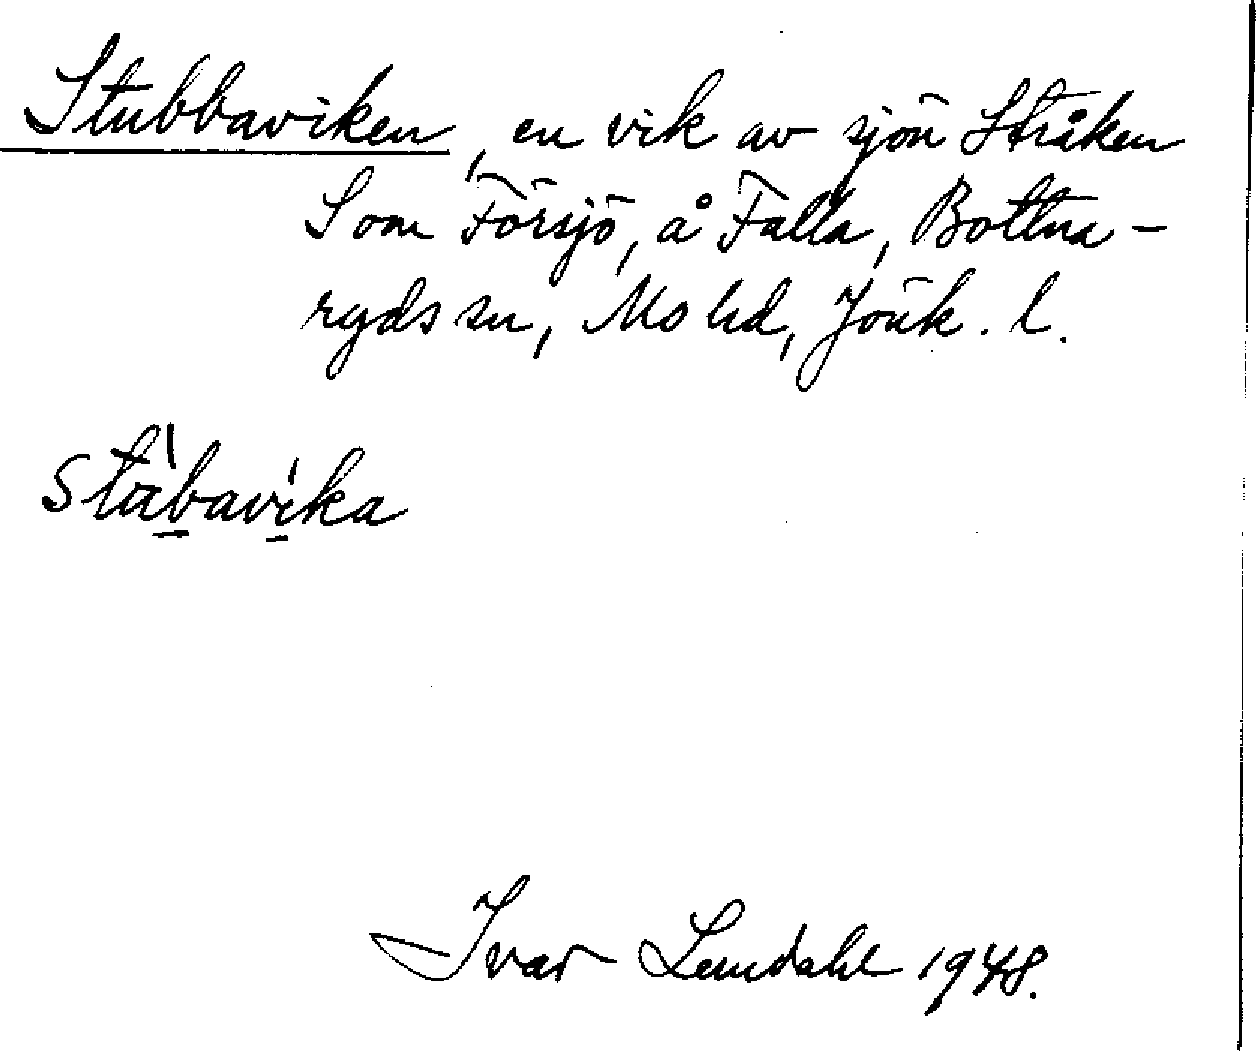 Stubbaviken, en vik av sjön Stråken
Som Försjö, å Falla, Bottna-
ryds sn, Mo hd, Jönk. l.
stäbavika
Ivar Lundahl 1948.